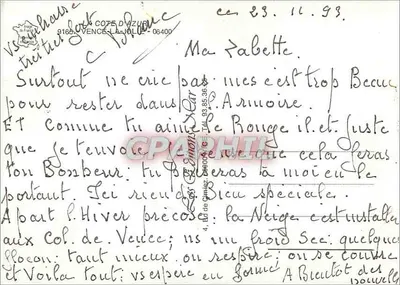 ces 23.11.93.
LA COTE D'AZUR
VENCE LA JOLIE - 06400
vs embrasse
très très fort
Ma Zabette.
Surtout ne crie pas mes c'est trop Beau
pour rester dans l'Armoire.
ET comme tu aimes le Rouge il et juste
que je t'envoi que cela feras
ton Bonheur. tu penseras à moi en le
portant. Ici rien de Bien speciale.
A part l'Hiver précoce: la Neige est installer
aux Col. de Vence; ns un froid Sec. quelques
flocon: tant mieux on respire; on se couvre
et Voila tout: vs espère en forme
A Bientot des
Nouvelles
CPARAMA